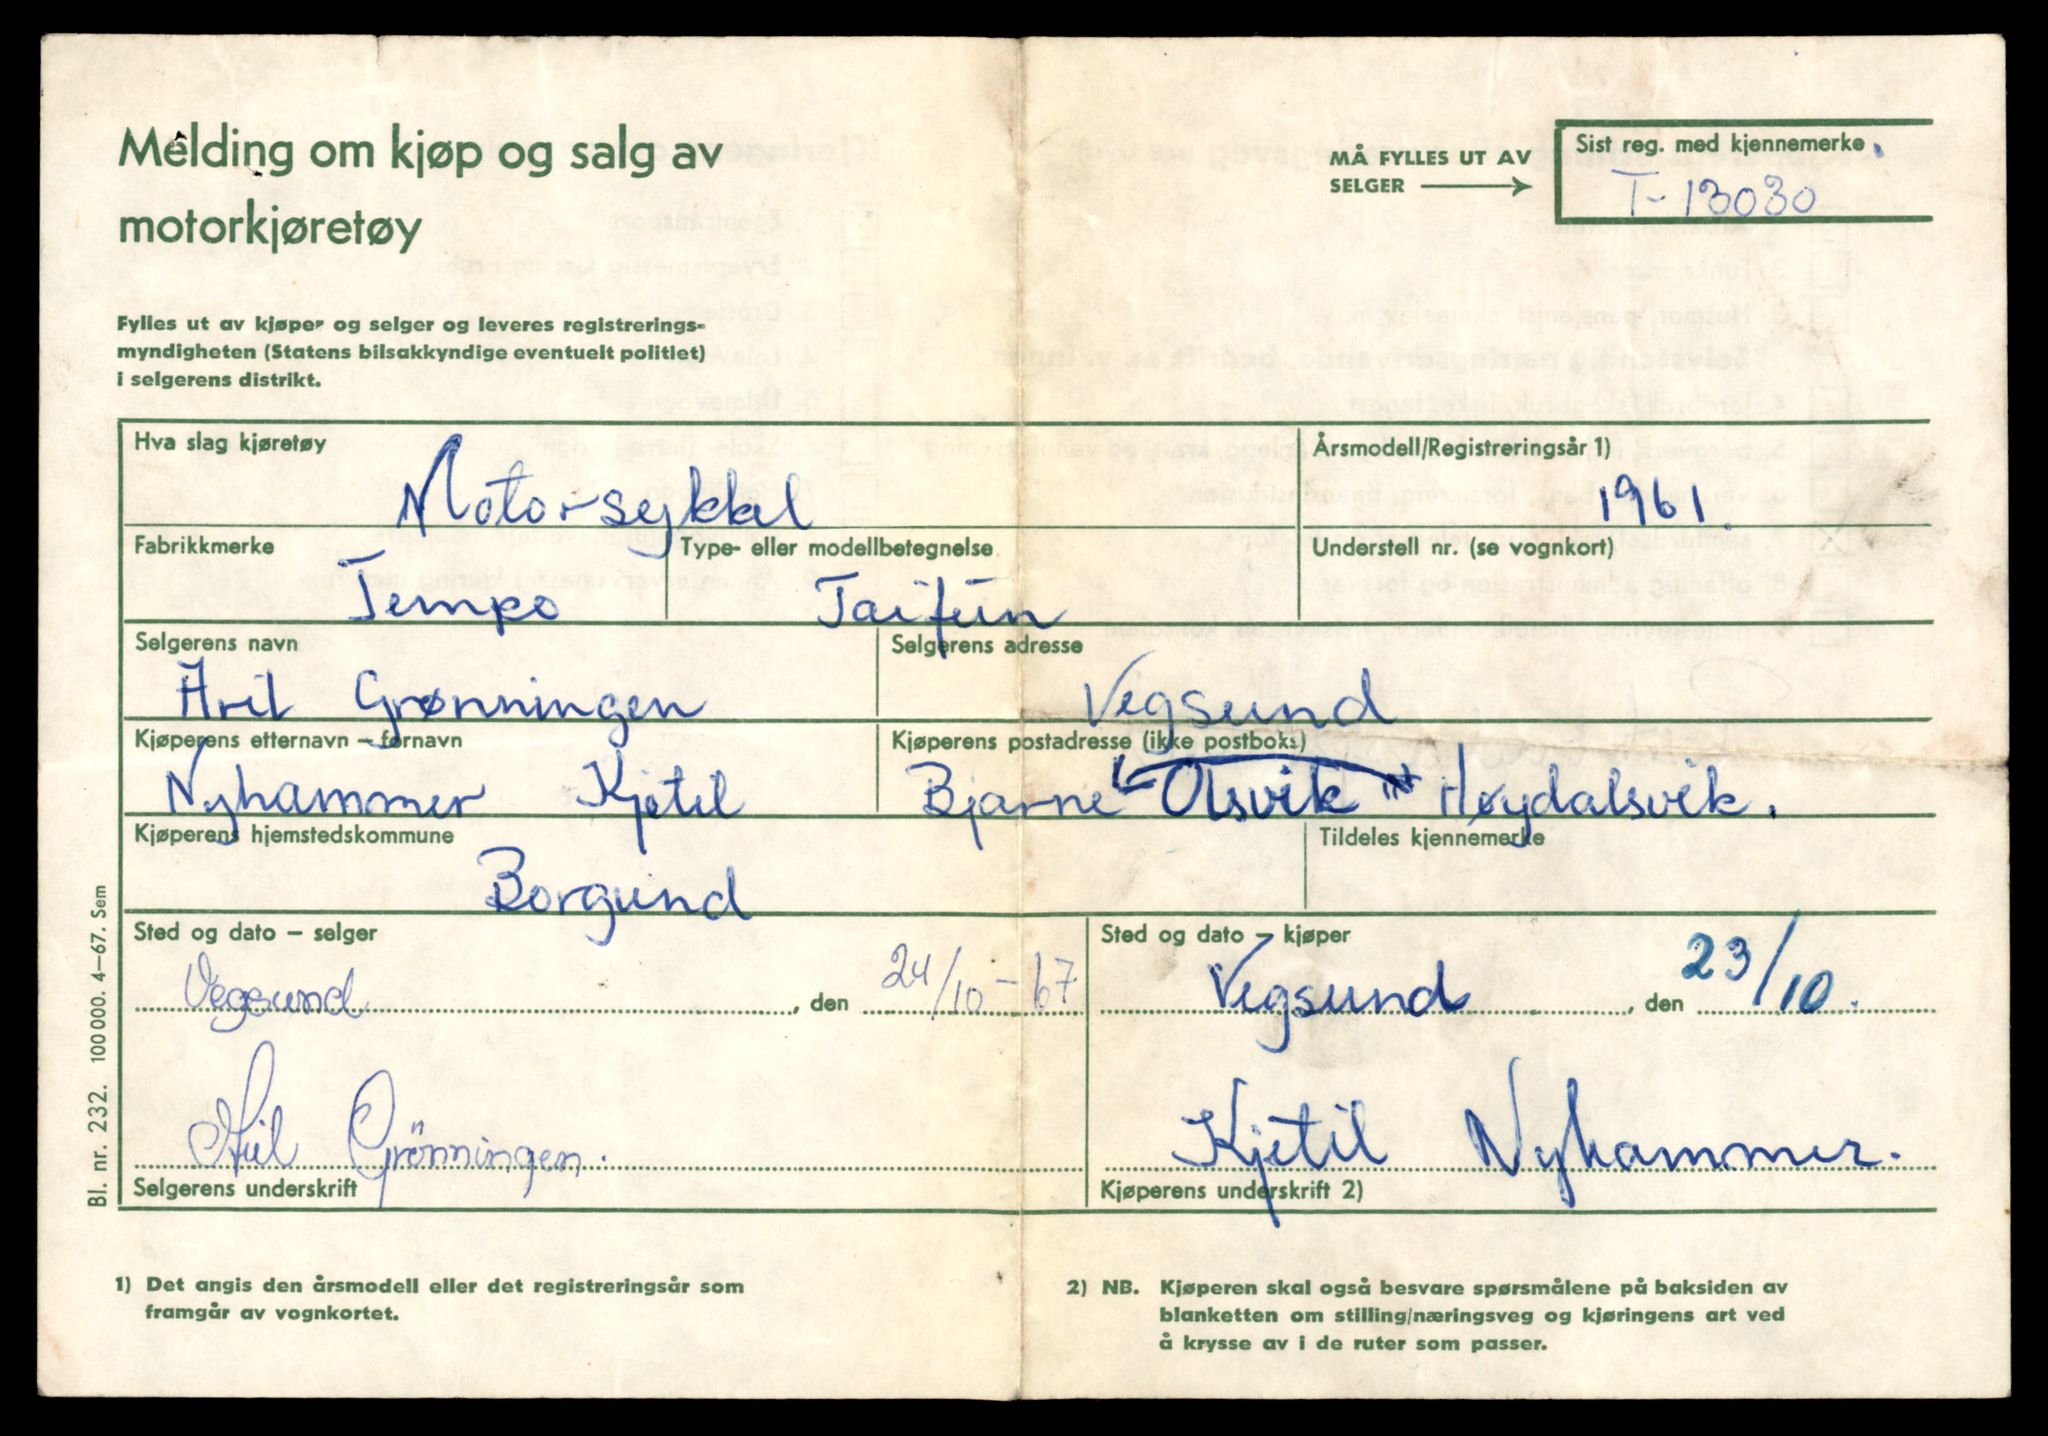 Melding om kjøp og salg av
motorkjøretøy
MÅ FYLLES UT AV
SELGER
Sist reg. med kjennemerke
T-13030
Fylles ut av kjøper og selger og leveres registrerings-
myndigheten (Statens bilsakkyndige eventuelt politiet)
i selgerens distrikt.
Hva slag kjøretøy
Motorsykkel
Årsmodell/Registreringsår 1)
1961.
Fabrikkmerke
Tempo
Type- eller modellbetegnelse
Taifun
Understell nr. (se vognkort)
Selgerens navn
Aril Grønningen
Selgerens adresse
Vegsund
Kjøperens etternavn – fornavn
Nyhammer Kjetil
Kjøperens postadresse (ikke postboks)
Bjarne Olsvik Høydalsvik.
Kjøperens hjemstedskommune
Borgund
Tildeles kjennemerke
Sted og dato – selger
Vegsund, den 24/10-67
Sted og dato – kjøper
Vegsund, den 23/10.
Aril Grönningen.
Selgerens underskrift
Kjetil Nyhammer.
Kjøperens underskrift 2)
Bl. nr. 232. 100 000. 4–67. Sem
1) Det angis den årsmodell eller det registreringsår som
framgår av vognkortet.
2) NB. Kjøperen skal også besvare spørsmålene på baksiden av
blanketten om stilling/næringsveg og kjøringens art ved
å krysse av i de ruter som passer.